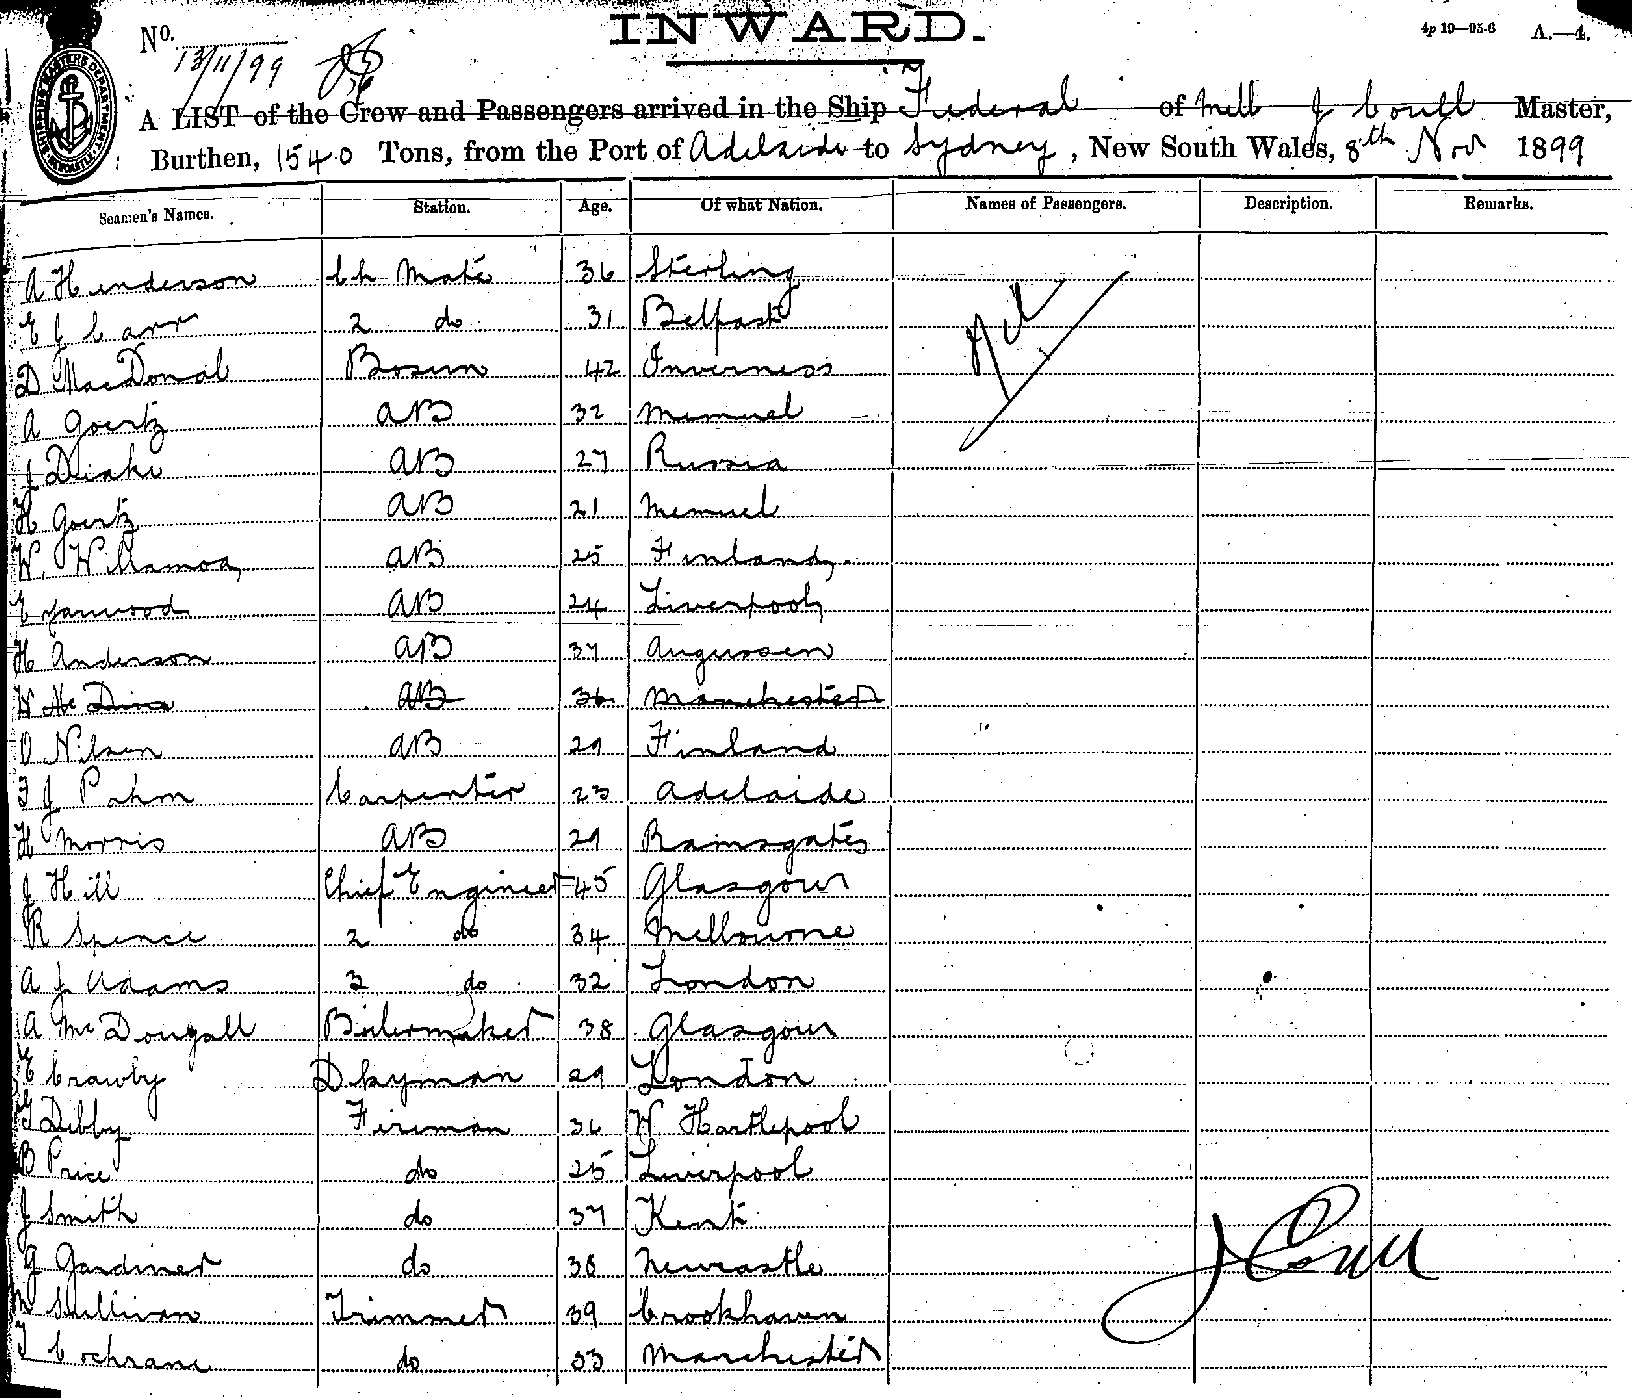 INWARD.
4p 19—95-6 A.—4.
No. 13/11/99
A LIST of the Crew and Passengers arrived in the Ship Federal of Melb J Coull Master,
Burthen, 1540 Tons, from the Port of Adelaide to Sydney, New South Wales, 8th Nov 1899
Seamen's Names. Station. Age. Of what Nation. Names of Passengers. Description. Remarks.
A Henderson Ch Mate 36 Sterling Nil
E J Carr 2 do 31 Belfast
D MacDonal Bosun 42 Inverness
A Goertz AB 32 Memuel
J AB 27 Russia
H Goertz AB 21 Memuel
W. AB 25 Finland
E Yarwood AB 24 Liverpool
H Anderson AB 37 Angussen
W Mc AB 36 Manchester
O Nilsen AB 29 Finland
J Pahm Carpenter 23 Adelaide
H Morris AB 29 Ramsgate
J Hill Chief Engineer 45 Glasgow
R Spence 2 do 34 Melbourne
A J Adams 3 do 32 London
A McDougall Boilermaker 38 Glasgow
E Crawby Dkyman 29 London
Dibby Fireman 36 W Hartlepool
B Price do 25 Liverpool
J Smith do 37 Kent
G Gardiner do 38 Newcastle
M Sullivan Trimmer 39 Crookhaven
T Cochrane do 33 Manchester
J Coull